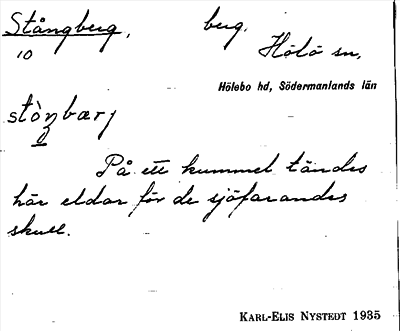 Stångberg, berg.
10 Hölö sn,
Hölebo hd, Södermanlands län
stòŋbærj
På ett kummel tändes
här eldar för de sjöfarandes
skull.
KARL-ELIS NYSTEDT 1935